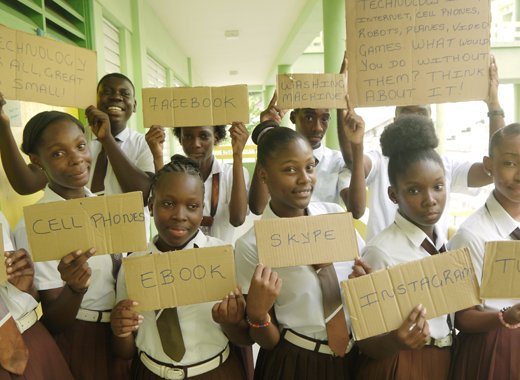 TECHNOLOGY
IS ALL, GREAT
SMALL!
FACEBOOK
WASHING
MACHINE
INTERNET, CELL PHONES,
ROBOTS, PLANES, VIDEO
GAMES WHAT WOULD
YOU DO WITHOUT
THEM? THINK
ABOUT IT!
CELL PHONES
EBOOK
SKYPE
INSTAGRAM